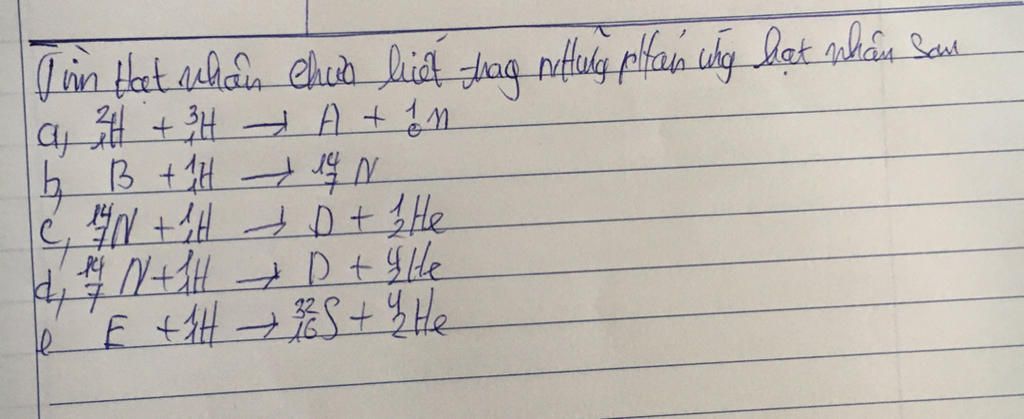 Tìm Hạt nhân chưa biết trog những phản ứng hạt nhân sau
a, ²₁H + ³₁H → A + ¹₀n
b, B + ¹₁H → ¹⁴₇N
c, ¹⁴₇N + ¹₁H → D + ¹₂He
d, ¹⁴₇N + ¹₁H → D + ⁴₂He
e E + ¹₁H → ³²₁₆S + ⁴₂He